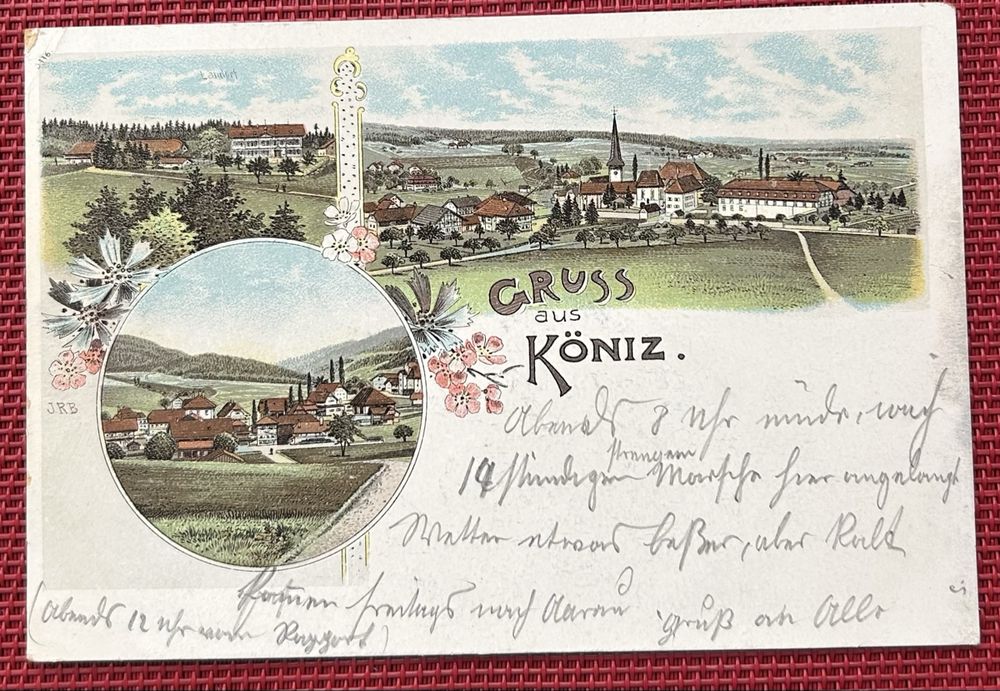 Landorf
GRUSS
aus
KÖNIZ.
J.R.B
Abends 8 Uhr müde, nach
strengem
14 stündigen Marsche hier angelangt
Wetter etwas beßer, aber Kalt
Kommen freitags nach Aarau
gruß an Alle
(Abends 12 Uhr vom Rapport)